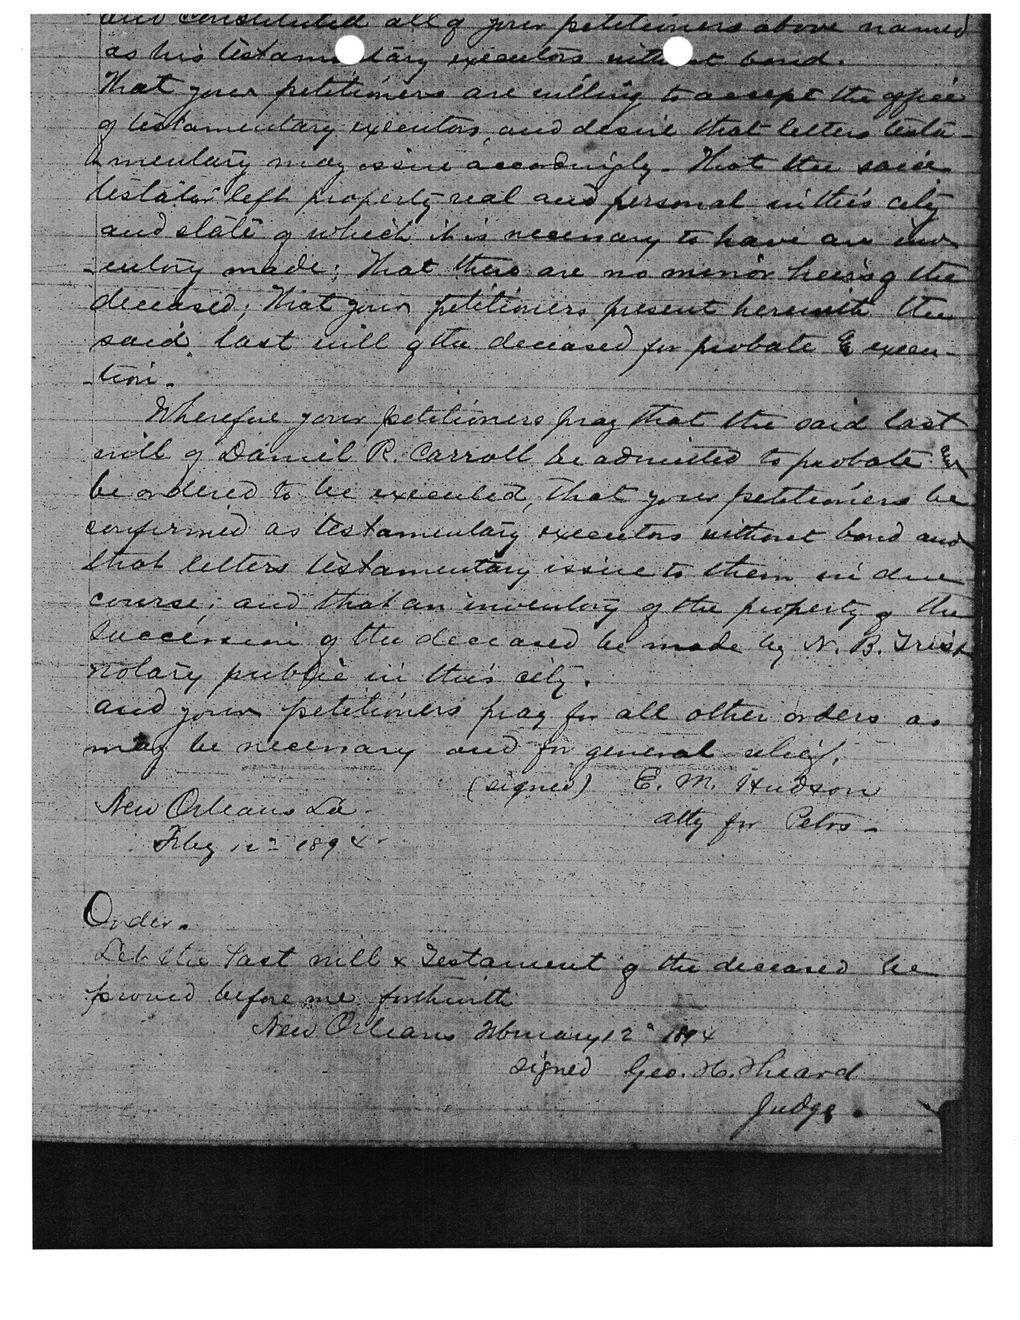 and constituted all of your petitioners above named
as his testamentary executors without bond.
That your petitioners are willing to accept the office
of testamentary executors and desire that letters testa-
-mentary may issue accordingly. That the said
testator left property real and personal in this city
and state of which it is necessary to have an inv-
-entory made; that there are no minor heirs of the
deceased; that your petitioners present herewith the
said last will of the deceased for probate & execu-
-tion.
Wherefore your petitioners pray that the said last
will of Daniel R. Carroll be admitted to probate &
be ordered to be executed, that your petitioners be
confirmed as testamentary executors without bond and
that letters testamentary issue to them in due
course; and that an inventory of the property of the
succession of the deceased be made by N. B. Trist
notary public in this city.
and your petitioners pray for all other orders as
may be necessary and for general relief.
(signed) E. M. Hudson
New Orleans La
atty for Petrs-
Feby 12" 1894.
Order.
Let the last will & Testament of the deceased be
proved before me forthwith
New Orleans February 12" 1894
signed Geo. H. Theard
Judge.